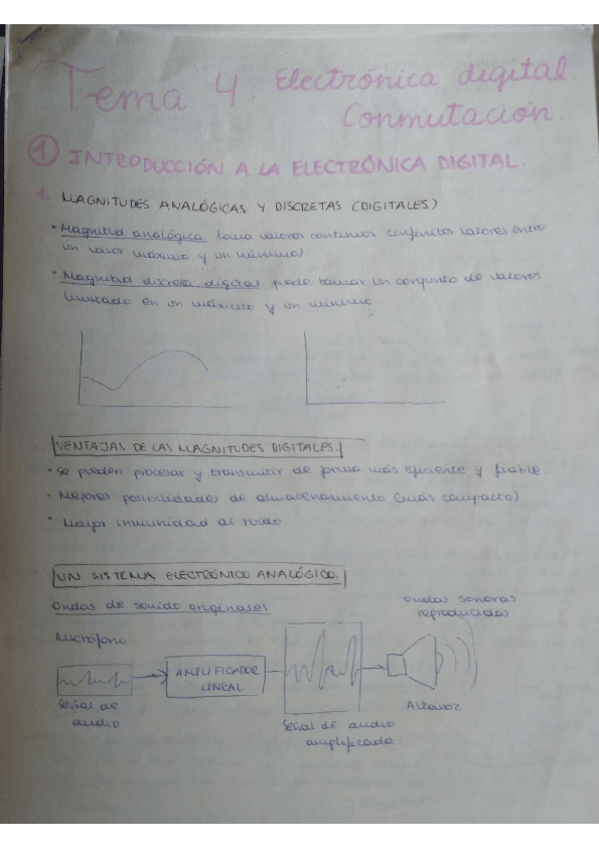 Tema 4. Electrónica digital.
Conmutación.
1 INTRODUCCIÓN A LA ELECTRÓNICA DIGITAL.
1. MAGNITUDES ANALÓGICAS Y DISCRETAS (DIGITALES)
• Magnitud analógica toma valores continuos (infinitos valores entre
un valor máximo y un mínimo).
• Magnitud discreta, digital puede tomar un conjunto de valores
limitado en un máximo y un mínimo.
VENTAJAS DE LAS MAGNITUDES DIGITALES.
• Se pueden procesar y transmitir de forma más eficiente y fiable.
• Mejores posibilidades de almacenamiento (más compacto)
• Mayor inmunidad al ruido.
UN SISTEMA ELECTRÓNICO ANALÓGICO.
Ondas de sonido originales
ondas sonoras
reproducidas
Micrófono
AMPLIFICADOR
LINEAL
Señal de
audio
Altavoz
Señal de audio
amplificada